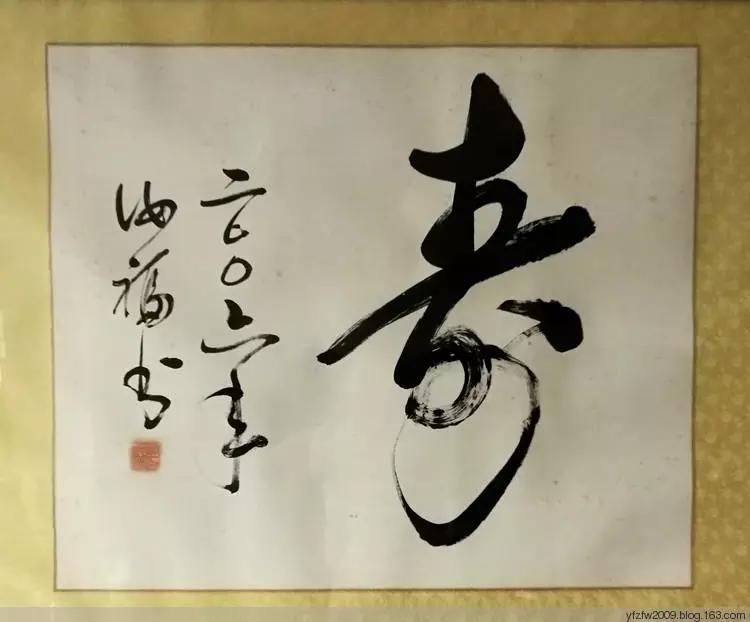 寿
二〇〇六年
海福书
yfzfw2009.blog.163.com